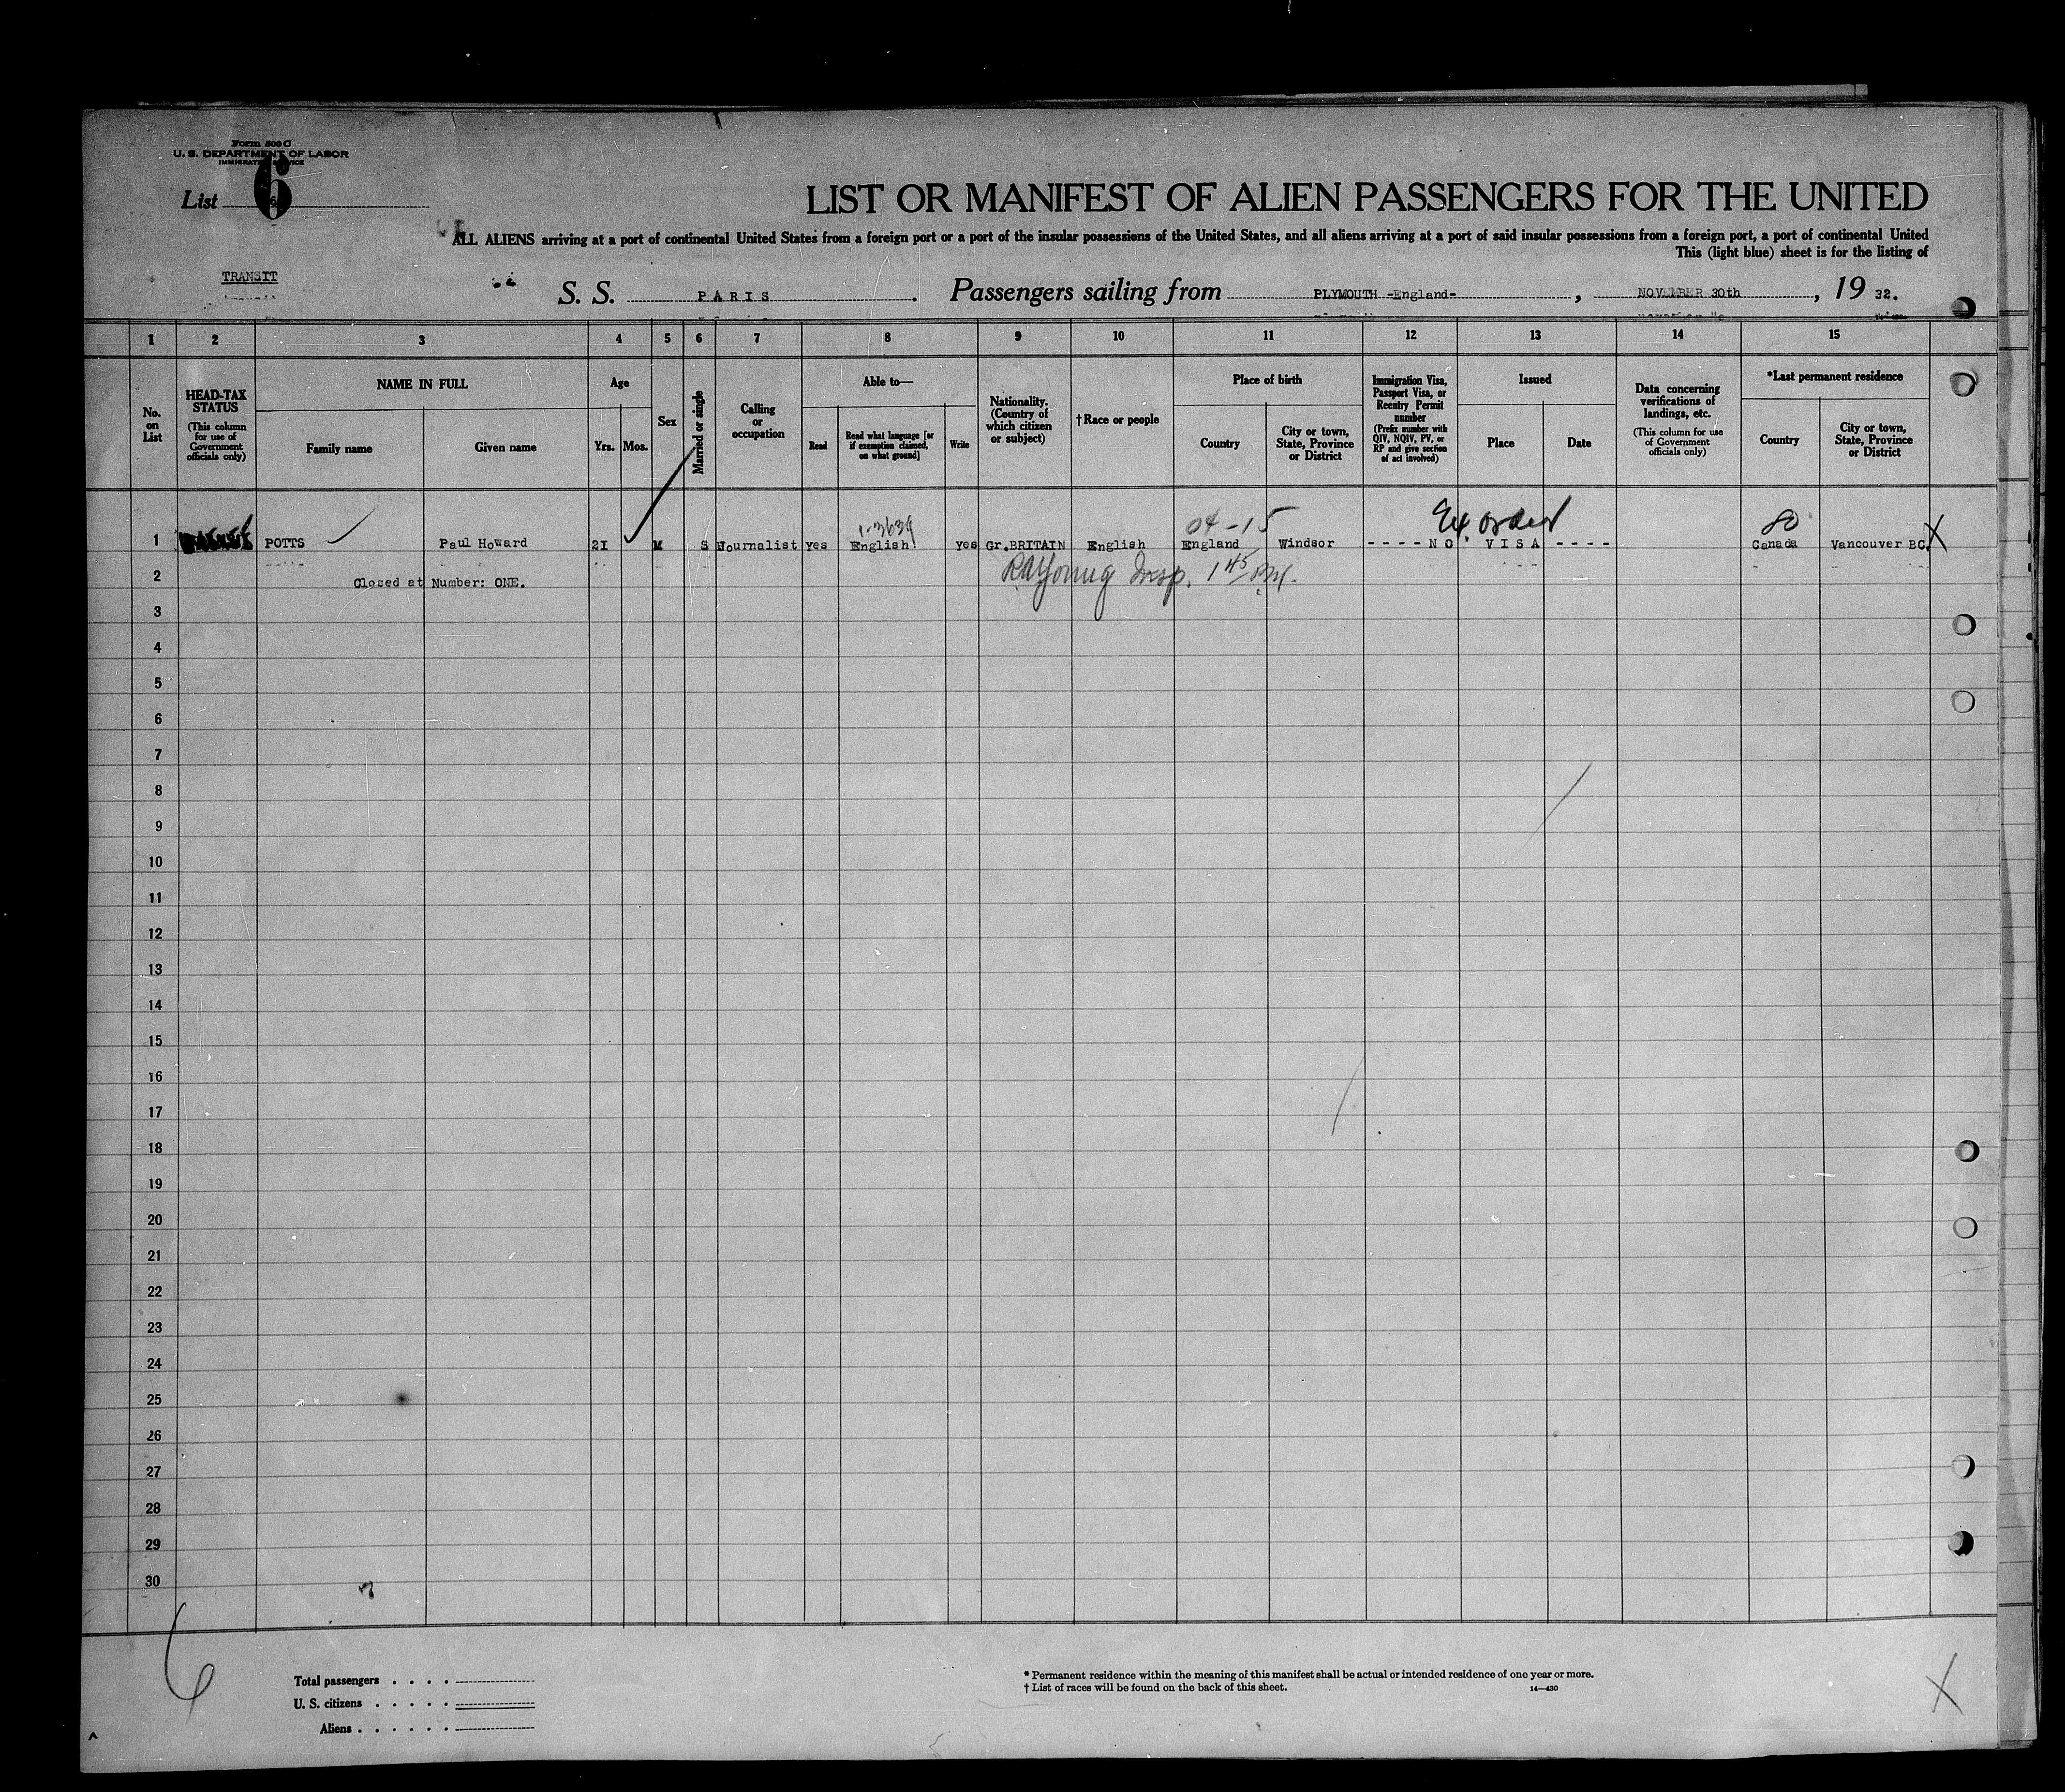 Form 500 C
U. S. DEPARTMENT OF LABOR
IMMIGRATION SERVICE
List 6
LIST OR MANIFEST OF ALIEN PASSENGERS FOR THE UNITED
ALL ALIENS arriving at a port of continental United States from a foreign port or a port of the insular possessions of the United States, and all aliens arriving at a port of said insular possessions from a foreign port, a port of continental United
This (light blue) sheet is for the listing of
TRANSIT
S. S. PARIS. Passengers sailing from PLYMOUTH -England-, NOVEMBER 30th, 19 32.
1 2 3 4 5 6 7 8 9 10 11 12 13 14 15
No. on List
HEAD-TAX STATUS
(This column for use of Government officials only)
NAME IN FULL
Family name
Given name
Age
Yrs. Mos.
Sex
Married or single
Calling or occupation
Able to—
Read
Read what language [or if exemption claimed, on what ground]
Write
Nationality. (Country of which citizen or subject)
†Race or people
Place of birth
Country
City or town, State, Province or District
Immigration Visa, Passport Visa, or Reentry Permit number
(Prefix number with QIV, NQIV, PV, or RP and give section of act involved)
Issued
Place
Date
Data concerning verifications of landings, etc.
(This column for use of Government officials only)
*Last permanent residence
Country
City or town, State, Province or District
1-3639 04-15 Ex. order 80
1 POTTS Paul Howard 21 M S Journalist yes English yes Gr.BRITAIN English England Windsor ----NO VISA---- Canada Vancouver BC. X
2 Closed at Number: ONE. RAYoung Insp. 1 45 PM.
3
4
5
6
7
8
9
10
11
12
13
14
15
16
17
18
19
20
21
22
23
24
25
26
27
28
29
30
6
Total passengers . . . .
U. S. citizens . . . . .
Aliens . . . . . .
* Permanent residence within the meaning of this manifest shall be actual or intended residence of one year or more.
† List of races will be found on the back of this sheet.
14—430
X